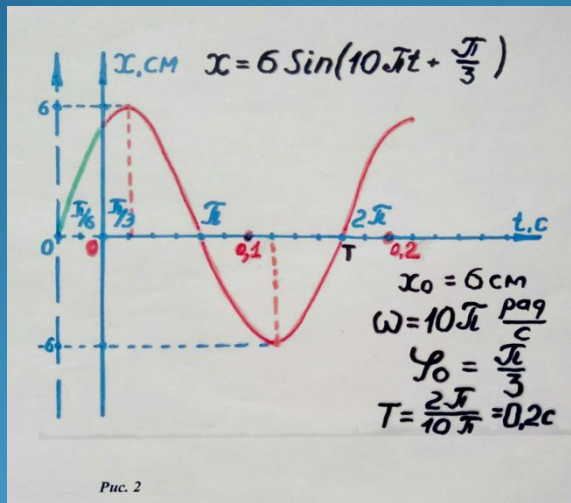 x,см x = 6 Sin(10πt + π/3)
6
π/6 π/3 π 2π t,c
0 0 0,1 T 0,2
-6
x₀ = 6 см
ω = 10π рад/с
φ₀ = π/3
T = 2π/10π = 0,2c
Рис. 2